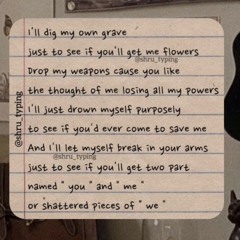 I'll dig my own grave
just to see if you'll get me flowers
@shru_typing
Drop my weapons cause you like
the thought of me losing all my powers
@shru_typing
I'll just drown myself purposely
to see if you'd ever come to save me
@shru_typing
And I'll let myself break in your arms
@shru_typing
just to see if you'll get two part
named " you " and " me "
or shattered pieces of " we "